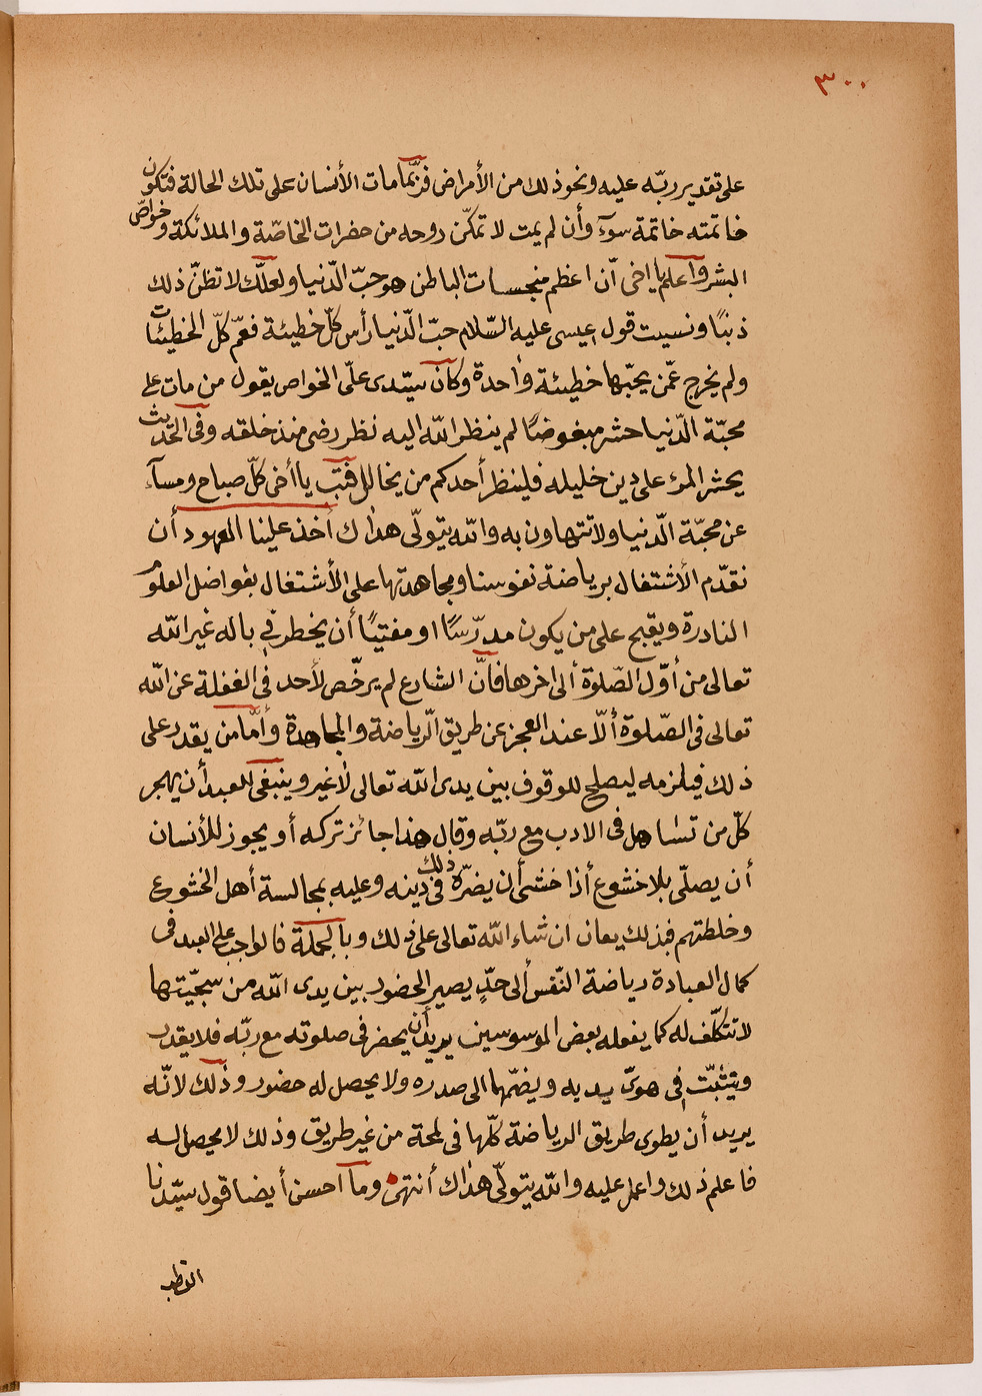 ٣٠٠
على تقدير ربّه عليه ونحو ذلك من الأمراض فربّما مات الأنسان على تلك الحالة فتكون
خاتمته خاتمة سوٓء وأن لم يمت لا تمكّن روحه من حضرات الخاصّة والملائكة وخواصّ
البشر واعلم يا اخى أنّ اعظم منجسات الباطن هو حبّ الدّنيا ولعلّك لا تظنّ ذلك
ذنبًا ونسيت قول عيسى عليه السّلام حبّ الدّنيا رأس كلّ خطيئة فعمّ كلّ الخطيئات
ولم يخرج عمّن يحبّها خطيئة واحدة وكان سيّدى علّى الخواص يقول من مات على
محبّة الدّنيا حشر مبغوضًا لم ينظر الله اليه نظر رضى منذ خلقه وفى الحديث
يحشر المرٔ على دين خليله فلينظر أحدكم من يخالل فتب يا أخى كلّ صباح ومسآء
عن محبّة الدّنيا ولا تتهاون به والله يتولّى هداك أخذ علينا العهود أن
نقدّم الأشتغال برياضة نفوسنا ومجاهدتها على الأشتغال بفواضل العلوم
النادرة ويقبح على من يكون مدرّسًا او مفتيًا أن يخطر فى باله غير الله
تعالى من أوّل الصّلوة ألى اخرها فانّ الشارع لم يرخّص لأحد فى الغفلة عن الله
تعالى فى الصّلوة ألّا عند العجز عن طريق الرّياضة والمجاهدة وأمّا من يقدر على
ذلك فيلزمه ليصلح للوقوف بين يدى الله تعالى لا غير وينبغى للعبد أن يهجر
كلّ من تساهل فى الادب مع ربّه وقال هذا جائز تركه أو يجوز للأنسان
أن يصلّى بلا خشوع أذا خشى أن يضرّه ذلك فى دينه وعليه بمجالسة أهل الخشوع
وخلطتهم فبذلك يعان ان شاء الله تعالى على ذلك وبالجملة فالواجب على العبد فى
كمال العبادة رياضة النّفس ألى حدّ يصير الحضور بين يدى الله من سجيّتها
لا تتكلّف له كما يفعله بعض الموسوسين يريد أن يحضر فى صلوته مع ربّه فلا يقدر
ويتثبّت فى هوىّ يديه ويضمّهما الى صدره ولا يحصل له حضور وذلك لانّه
يريد أن يطوى طريق الرياضة كلّها فى لمحة من غير طريق وذلك لا يحصل له
فاعلم ذلك واعمل عليه والله يتولّى هداك أنتهى وما احسن أيضا قول سيّدنا
القطب